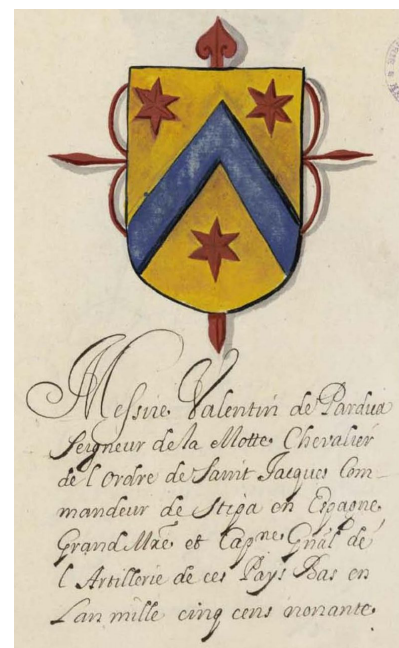 Messire Valentin de Pardua
Seigneur de la Motte Chevalier
de l'ordre de Saint Jacques Com-
mandeur de Stipa en Espagne
Grand Mre et Capne Gnãl de
l Artillerie de ces Pays Bas en
Lan mille cinq cens nonante.